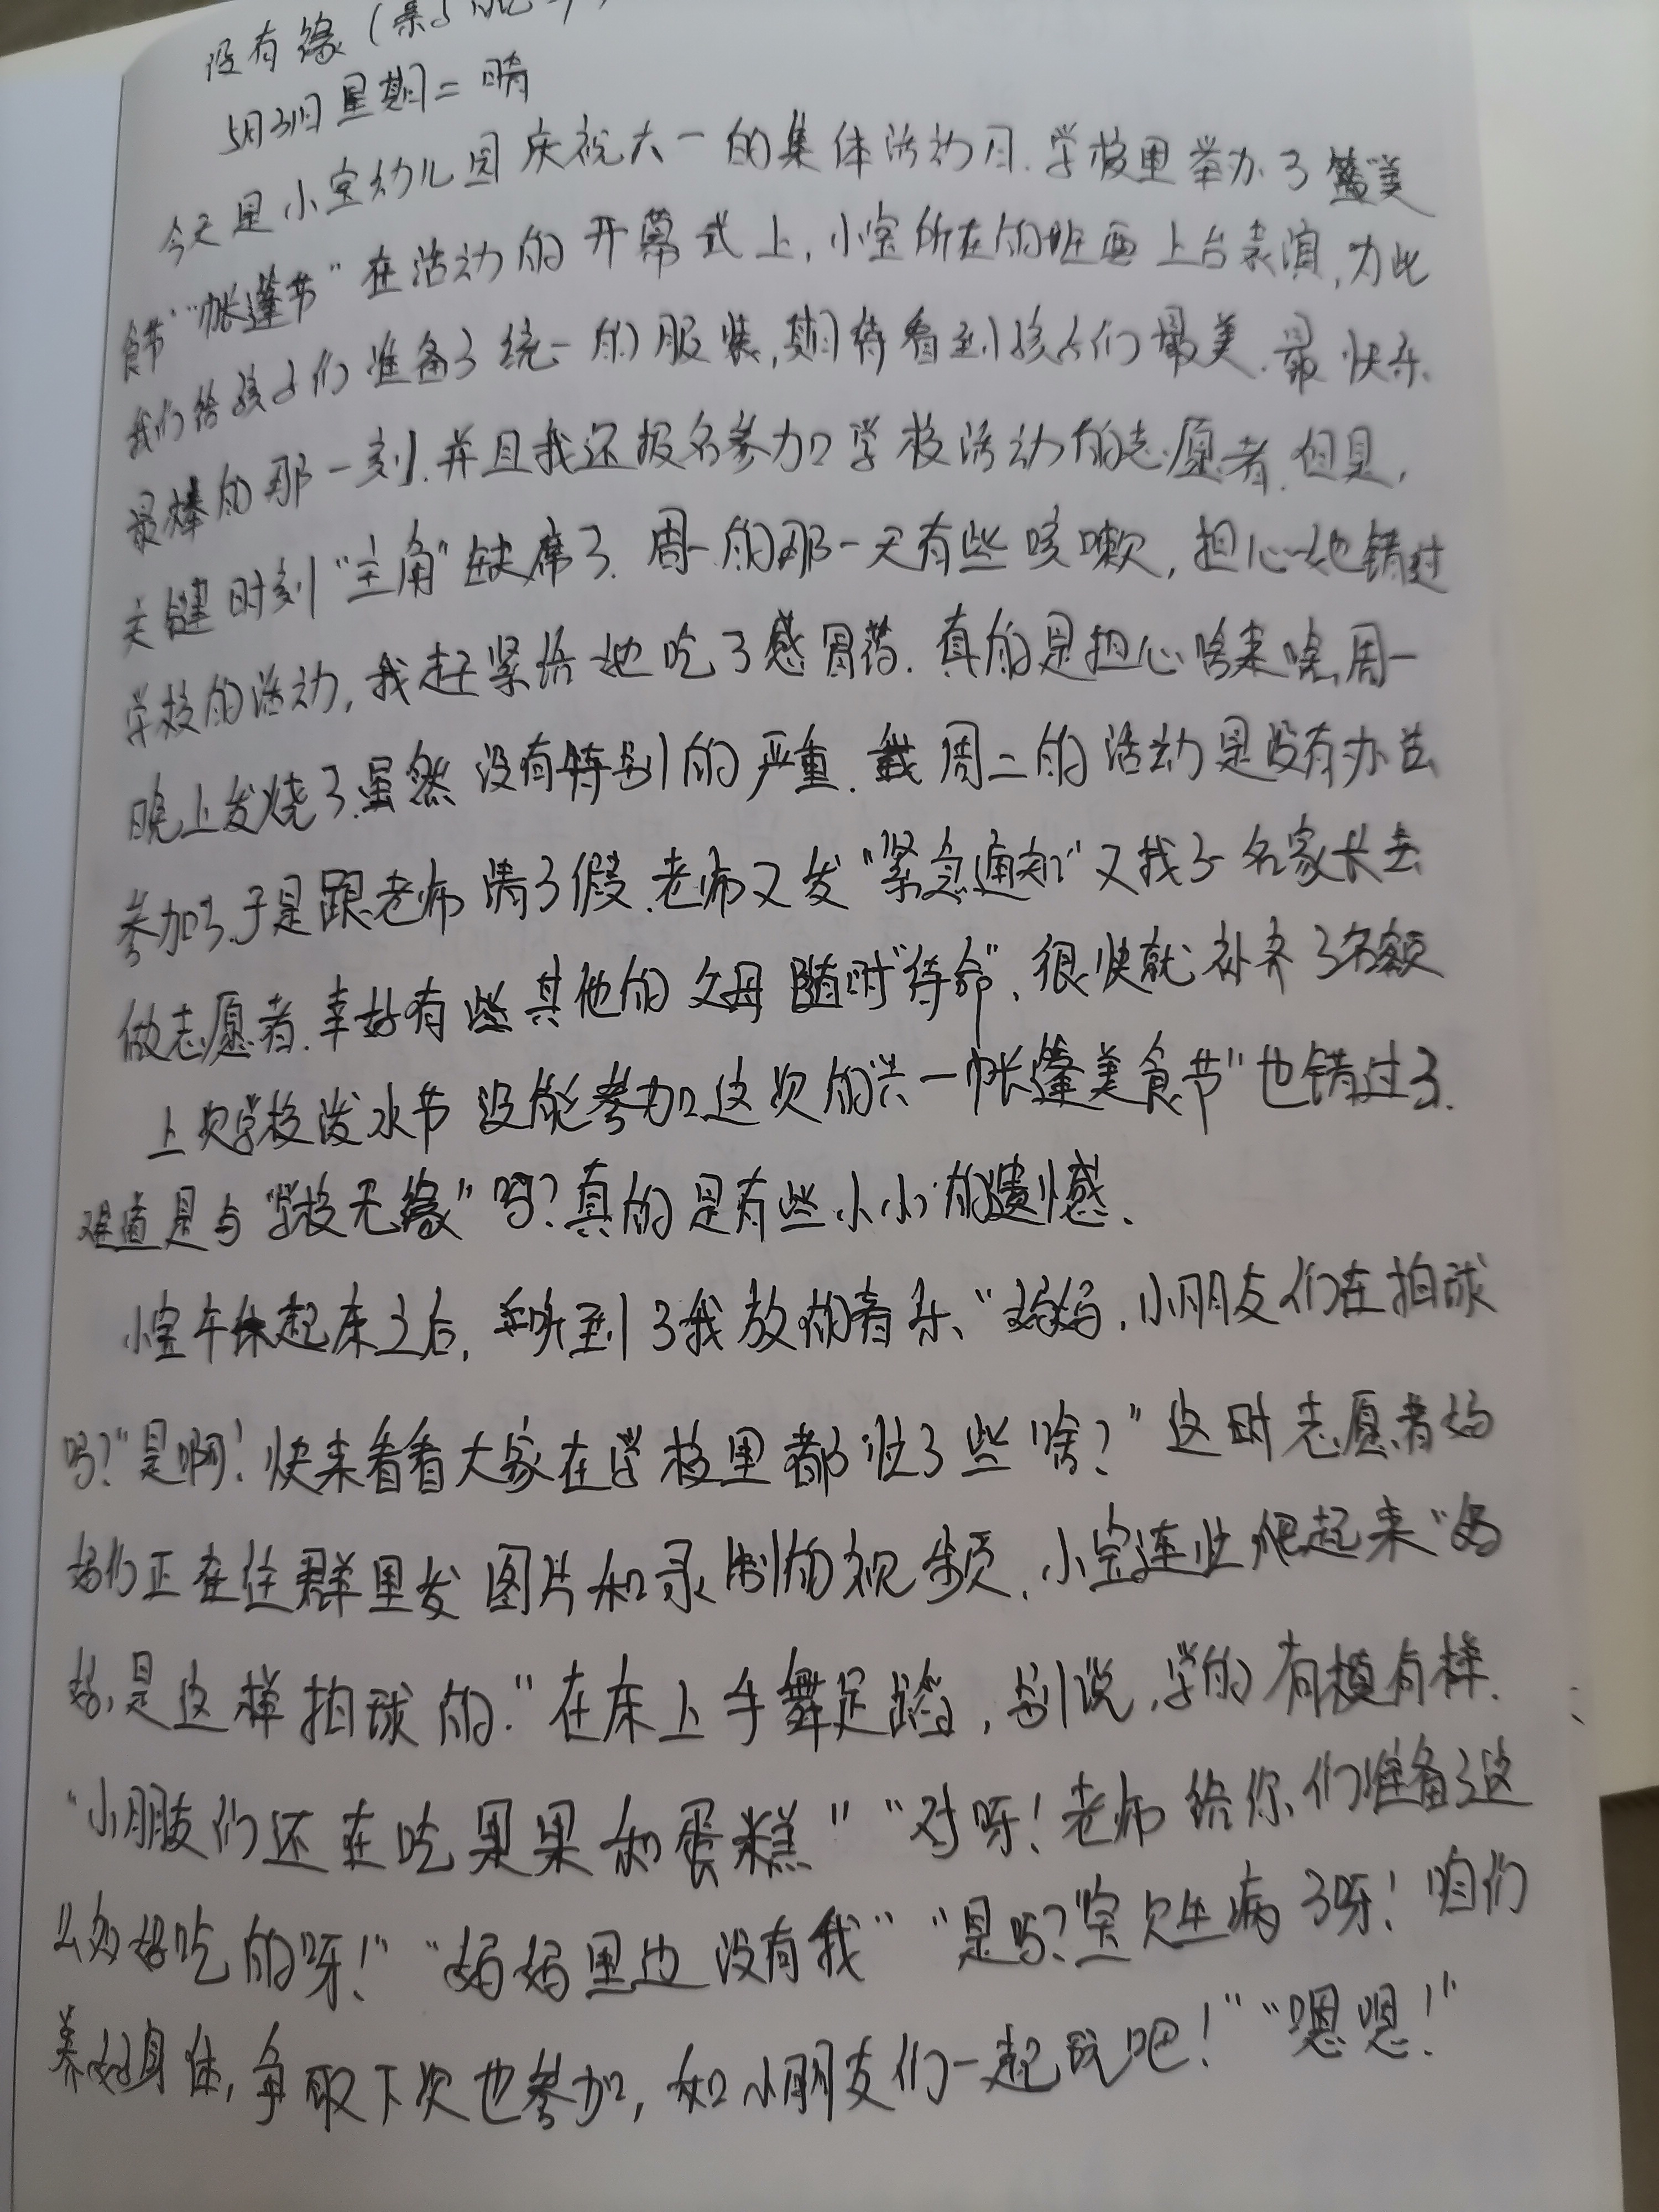 没有缘（亲子
5月31日 星期二 晴
今天是小宝幼儿园庆祝六一的集体活动日.学校里举办了"美
食节""帐篷节"在活动的开幕式上,小宝所在的班要上台表演,为此
我们给孩子们准备了统一的服装,期待看到孩子们最美.最快乐.
最棒的那一刻.并且我还报名参加学校活动的志愿者.但是,
关键时刻"主角"缺席了.周一的那一天有些咳嗽,担心她错过
学校的活动,我赶紧给她吃了感冒药.真的是担心啥来啥,周一
晚上发烧了.虽然没有特别的严重.周二的活动是没有办法
参加了.于是跟老师请了假.老师又发"紧急通知"又找了一名家长去
做志愿者.幸好有些其他的父母随时"待命",很快就补齐了名额
上次学校泼水节没能参加,这次的"六一帐篷美食节"也错过了.
难道是与"学校无缘"吗?真的是有些小小的遗憾.
小宝午休起床之后,听到了我放的音乐、"妈妈,小朋友们在拍球
吗?""是啊!快来看看大家在学校里都玩了些啥?"这时志愿者妈
妈们正在往群里发图片和录制的视频,小宝连忙爬起来"妈
妈,是这样拍球的."在床上手舞足蹈,别说,学的有模有样.
"小朋友们还在吃果果和蛋糕""对呀!老师给你们准备了这
么多好吃的呀!""妈妈里边没有我""是吗?宝贝生病了呀!咱们
养好身体,争取下次也参加,和小朋友们一起玩吧!""嗯嗯!"